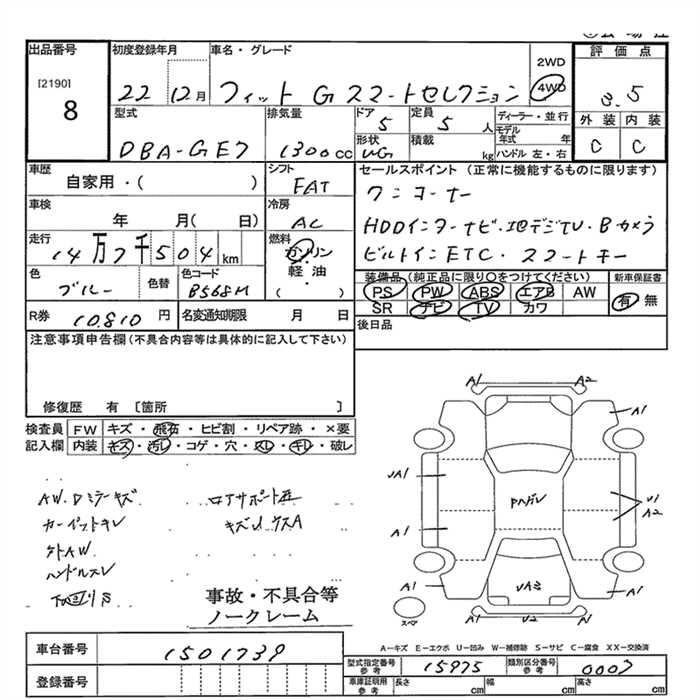 出品番号 初度登録年月 車名・グレード 評価点
[2190] 2WD
8 22 12月 フィット G スマートセレクション 4WD 3.5
型式 排気量 ドア 定員 ディーラー・並行 外装 内装
DBA-GE7 1300cc 5 5 人 モデル年式 年 C C
形状 積載 kg ハンドル 左・右
車歴 シフト セールスポイント (正常に機能するものに限ります)
自家用・( ) FAT ワンオーナー
車検 冷房
年 月( 日) AC HDDインターナビ・地デジTV・Bカメラ
走行 燃料
14万7千504km ガソリン・軽油・( ) ビルトインETC・スマートキー
色 色替 色コード 装備品 (純正品に限り○をつけてください) 新車保証書
ブルー B568M PS PW ABS エアB AW 有 無
R券 10,810 円 名変通知期限 月 日 SR ナビ TV カワ
注意事項申告欄 (不具合内容等は具体的に記入して下さい) 後日品
修復歴 有 〔箇所 〕
検査員 FW キズ・飛石・ヒビ割・リペア跡・×要
記入欄 内装 キズ・汚レ・コゲ・穴・スレ・キレ・破レ
A1 A2
A1
AW.Dミラーキズ
カーペットキレ
UA1 Pハゲレ U1
A2
A1
外AW
ハンドルスレ
下廻リS
A1 A1
スペ A1 U2 A1
事故・不具合等
ノークレーム
A-キズ E-エクボ U-凹み W-補修跡 S-サビ C-腐食 XX-交換済
車台番号 1501739 型式指定番号 参考 15975 類別区分番号 参考 0007
登録番号 車庫証明用 参考 長さ cm 幅 cm 高さ cm